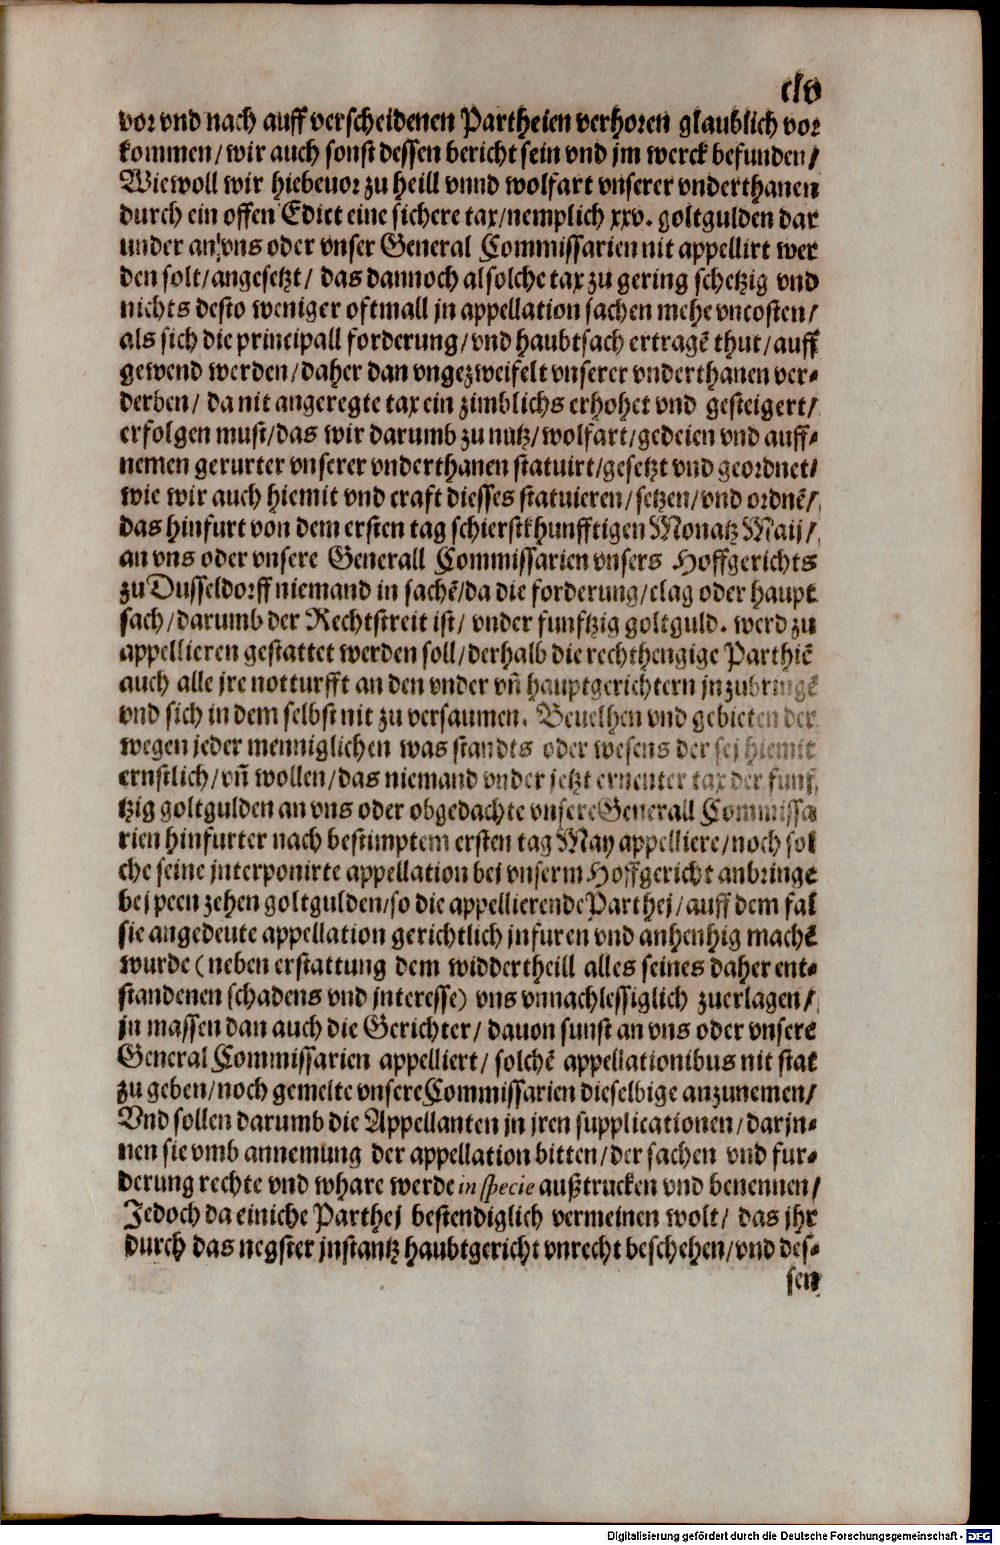 clv
vor vnd nach auff verscheidenen Partheien verhoren glaublich vor
kommen/ wir auch sonst dessen bericht sein vnd jm werck befunden/
Wiewoll wir hiebeuor zu heill vnnd wolfart vnserer vnderthanen
durch ein offen Edict eine sichere tax/ nemplich xxv. goltgulden dar
under an vns oder vnser General Commissarien nit appellirt wer
den solt/ angesetzt/ das dannoch alsolche tax zu gering schetzig vnd
nichts desto weniger oftmall jn appellation sachen mehe vncosten/
als sich die principall forderung/ vnd haubtsach ertragẽ thut/ auff
gewend werden/ daher dan vngezweifelt vnserer vnderthanen ver-
derben/ da nit angeregte tax ein zimblichs erhohet vnd gesteigert/
erfolgen must/ das wir darumb zu nutz/ wolfart/ gedeien vnd auff-
nemen gerurter vnserer vnderthanen statuirt/ gesetzt vnd geordnet/
wie wir auch hiemit vnd craft diesses statuieren/ setzen/ vnd ordnẽ/
das hinfurt von dem ersten tag schierstkhunfftigen Monatz Maij/
an vns oder vnsere Generall Commissarien vnsers Hoffgerichts
zu Dusseldorff niemand in sachẽ/ da die forderung/ clag oder haupt
sach/ darumb der Rechtstreit ist/ vnder funftzig goltguld. werd zu
appellieren gestattet werden soll/ derhalb die rechthengige Parthiẽ
auch alle jre notturfft an den vnder vñ hauptgerichtern jnzubringẽ
vnd sich in dem selbst nit zu versaumen. Beuelhen vnd gebieten der
wegen jeder menniglichen was standts oder wesens der sej hiemit
ernstlich/ vñ wollen/ das niemand vnder jetzt ernenter tax der funf
tzig goltgulden an vns oder obgedachte vnsere Generall Commissa
rien hinfurter nach bestimptem ersten tag May appelliere/ noch sol
che seine jnterponirte appellation bei vnserm Hoffgericht anbringe
bej peen zehen goltgulden/ so die appellierende Parthej/ auff dem fal
sie angedeute appellation gerichtlich jnfuren vnd anhenhig machẽ
wurde (neben erstattung dem widdertheill alles seines daher ent-
standenen schadens vnd jnteresse) vns vnnachlessiglich zuerlagen/
jn massen dan auch die Gerichter/ dauon sunst an vns oder vnsere
General Commissarien appelliert/ solchẽ appellationibus nit stat
zu geben/ noch gemelte vnsere Commissarien dieselbige anzunemen/
Vnd sollen darumb die Appellanten jn jren supplicationen/ darjn-
nen sie vmb annemung der appellation bitten/ der sachen vnd fur-
derung rechte vnd whare werde in specie außtrucken vnd benennen/
Jedoch da einiche Parthej bestendiglich vermeinen wolt/ das jhr
durch das negster jnstantz haubtgericht vnrecht beschehen/ vnd des-
sen
Digitalisierung gefördert durch die Deutsche Forschungsgemeinschaft - DFG